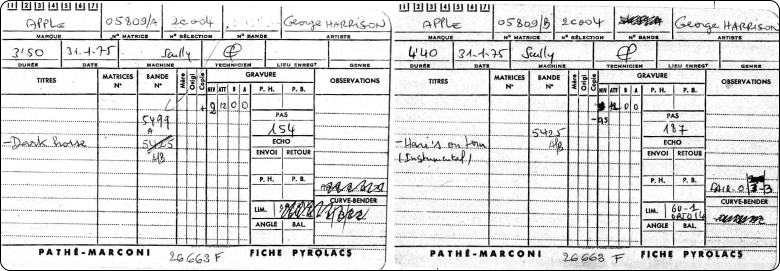 1 2 3 4 5 6 7
APPLE 05809/A 2C004 George HARRISON
MARQUE N° MATRICE N° SÉLECTION N° BANDE ARTISTE
3'50 31-1-75 Scully
DURÉE DATE MACHINE TECHNICIEN LIEU ENREGt GENRE
TITRES MATRICES N° BANDE N° Mère Origi Copie GRAVURE OBSERVATIONS
NIV ATT B A P. H. P. B.
+ 2 12 0 0
5499 A
PAS
154
- Dark horse
5425 A/B
ECHO
ENVOI RETOUR
P. H. P. B.
CURVE-BENDER
LIM.
ANGLE BAL.
PATHÉ-MARCONI 26663 F FICHE PYROLACS
1 2 3 4 5 6 7
APPLE 05809/B 2C004 George HARRISON
MARQUE N° MATRICE N° SÉLECTION N° BANDE ARTISTE
4'40 31-1-75 Scully
DURÉE DATE MACHINE TECHNICIEN LIEU ENREGt GENRE
TITRES MATRICES N° BANDE N° Mère Origi Copie GRAVURE OBSERVATIONS
NIV ATT B A P. H. P. B.
12 0 0
PAS
187
- Hari's on tour
(Instrumental)
5425 A/B
ECHO
ENVOI RETOUR
P. H. P. B.
CURVE-BENDER
LIM.
ANGLE BAL.
PATHÉ-MARCONI 26663 F FICHE PYROLACS